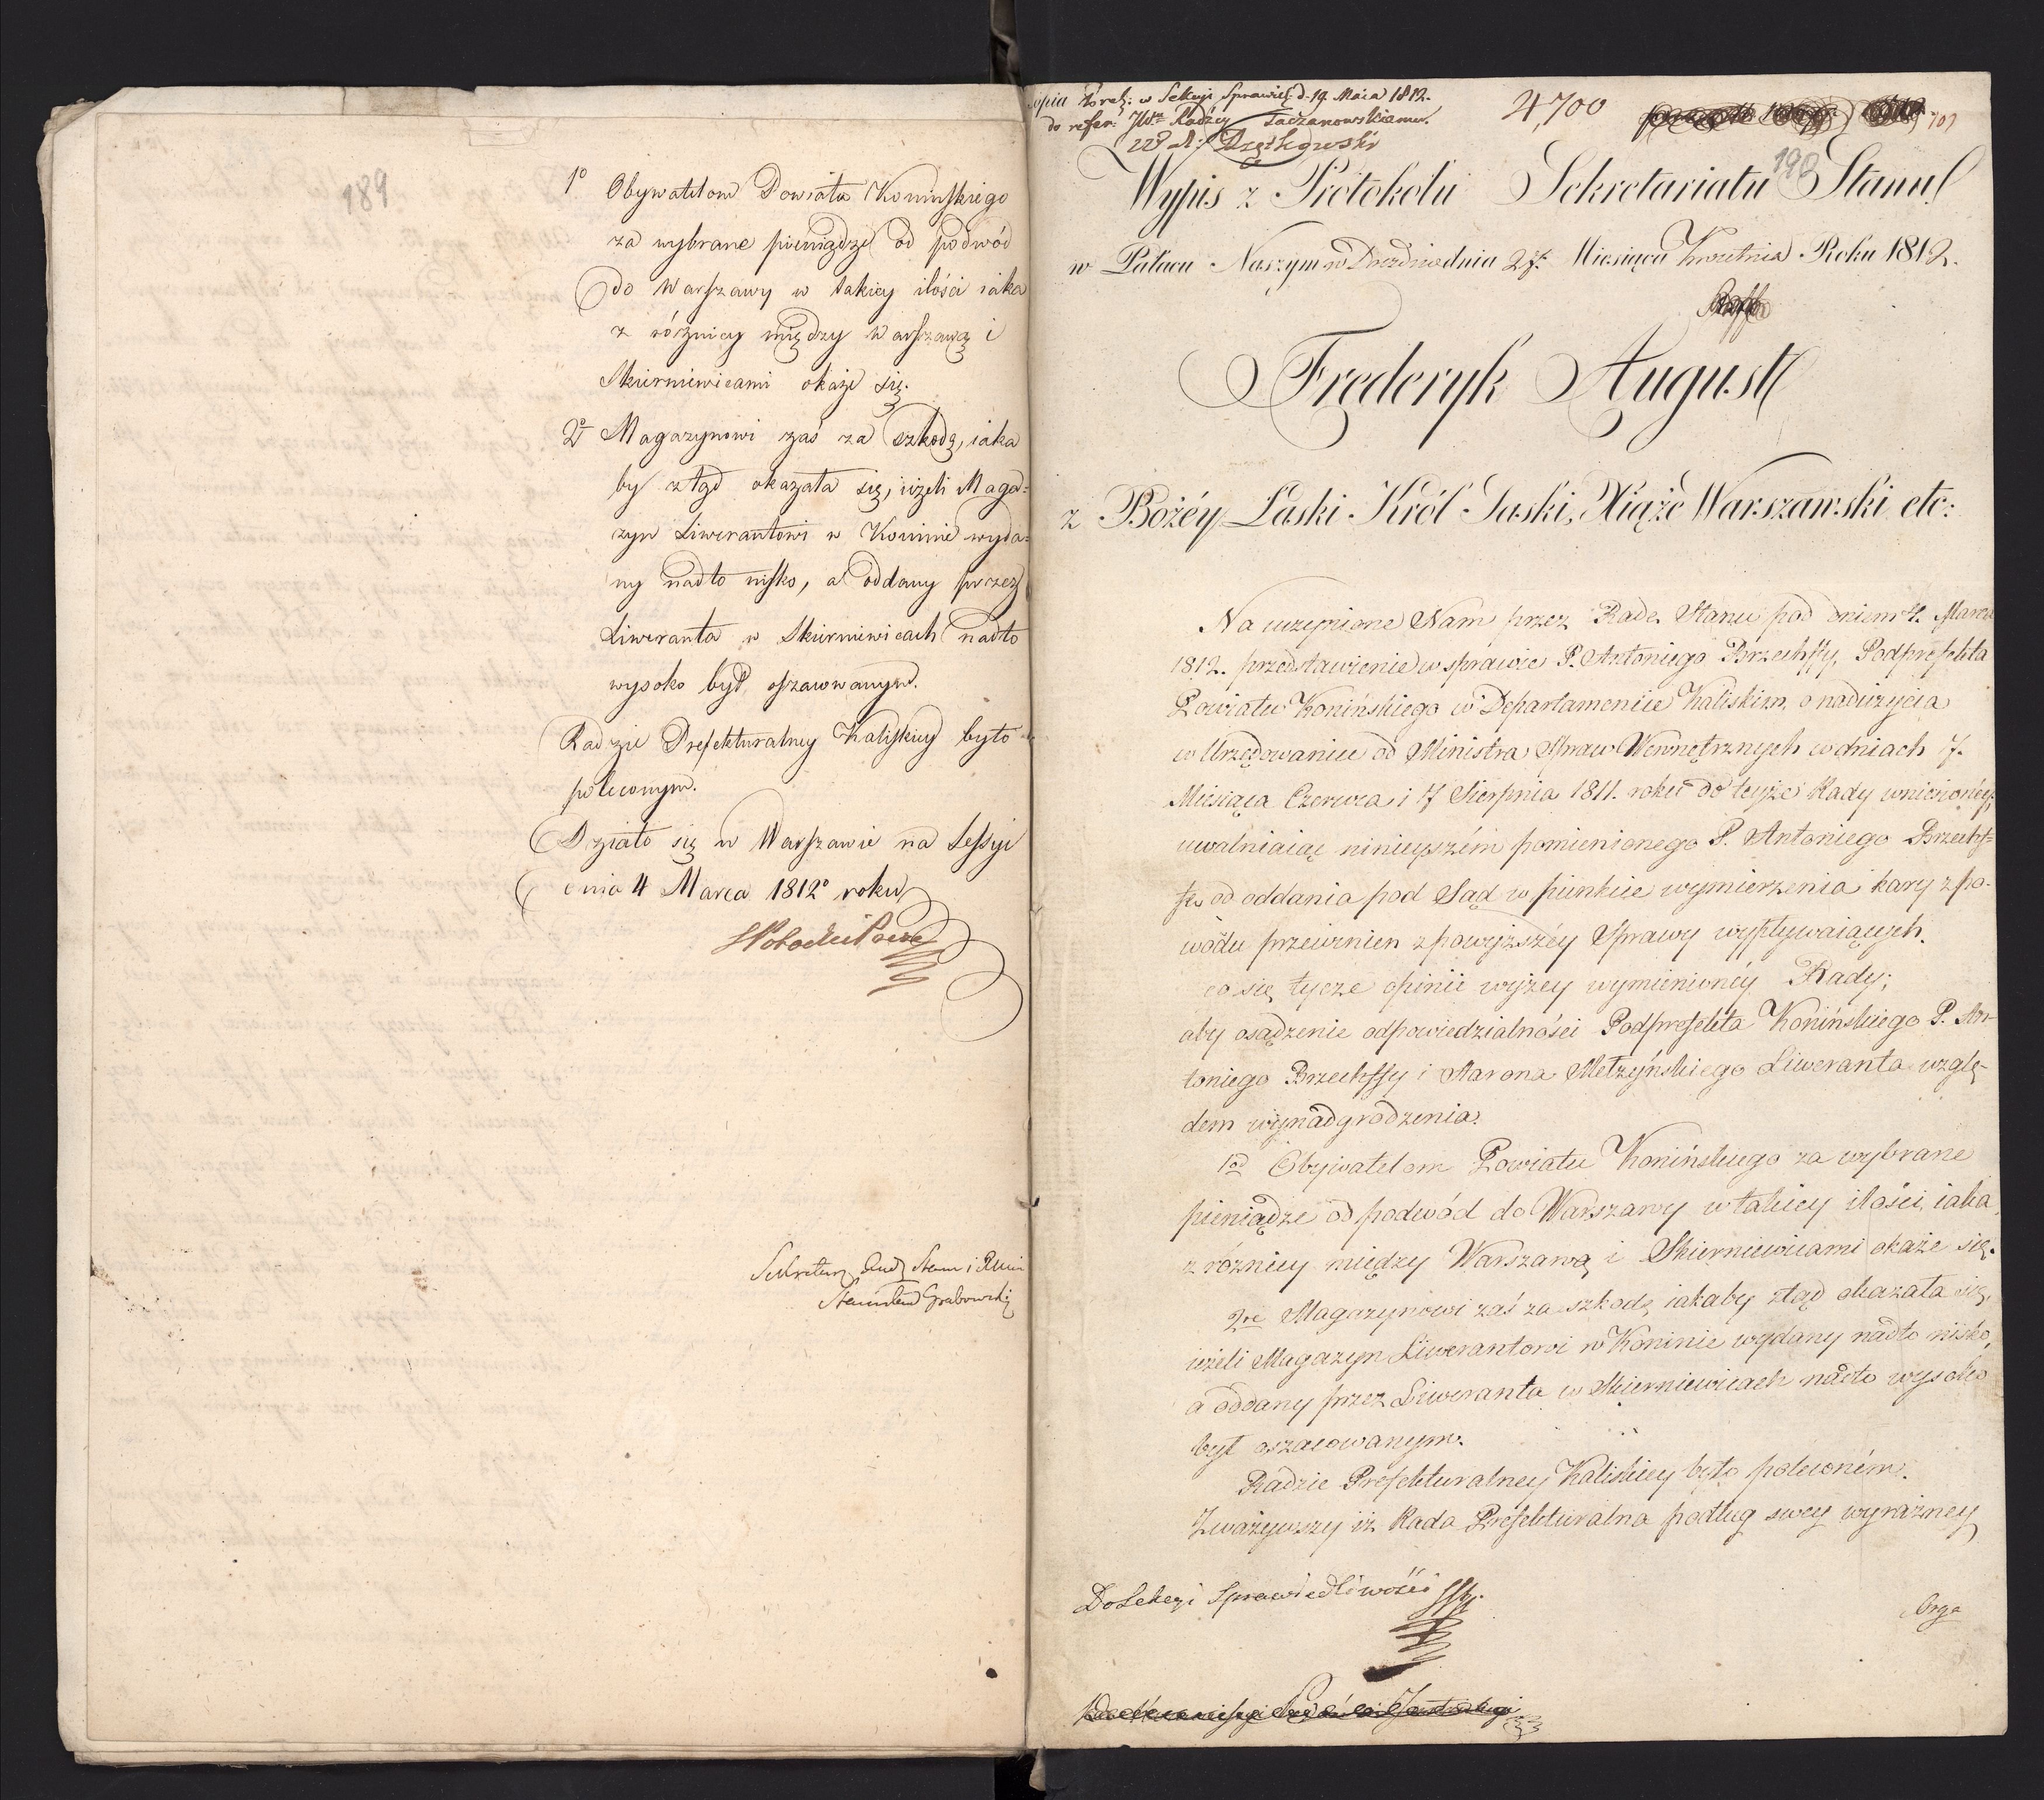 189
1º Obywatelom Powiatu Konińskiego
za wybrane pieniądze od podwód
do Warszawy w takiey ilości iaka
z różnicy między Warszawą i
Skierniewicami okaże się.
2º Magazynowi zaś za szkodę, iaka
by ztąd okazała się, ieżeli Maga=
zyn Liwerantowi w Koninie wyda=
ny nadto nisko, a oddany przez
Liweranta w Skierniewicach nadto
wysoko był oszacowanym.
Radzie Prefekturalney Kaliskiey było
poleconym.
Działo się w Warszawie na Sessyi
dnia 4 Marca 1812º roku
Sekretarz Rady Stanu i Mini
Stanisław Grabowski
opia w Sekcyi Sprawied. d. 19. Maia 1812.
do refer: JWu Radzcy Taczanowskiemu.
4,700
701
190
Wypis z Protokołu Sekretariatu Stanu
w Pałacu Naszym w Dreźnie dnia 27. Miesiąca Kwietnia Roku 1812.
Frederyk August
z Bożéy Łaski Król Saski, Xiążę Warszawski etc:
Na uczynione Nam przez Radę Stanu pod dniem 4. Marca
1812. przedstawienie w sprawie P. Antoniego Brzechffy, Podprefekta
Powiatu Konińskiego w Departamencie Kaliskim, o nadużycia
w Urzędowaniu od Ministra Spraw Wewnętrznych w dniach 7.
Miesiąca Czerwca i 17 Sierpnia 1811. roku do teyże Rady wniesionéy,
uwalniaiąc ninieyszém pomienionego P. Antoniego Brzechf=
fę od oddania pod Sąd w punkcie wymierzenia kary z po-
wodu przewinien z powyższéy Sprawy wypływaiących.
co się tycze opinii wyżey wymienionéy Rady;
aby osądzenie odpowiedzialności Podprefekta Konińskiego P. An-
toniego Brzechffy i Aarona Metzyńskiego Liweranta wzglę-
dem wynadgrodzenia.
1od Obywatelom Powiatu Konińskiego za wybrane
pieniądze od podwód do Warszawy w takiey ilości, iaka
z różnicy między Warszawą i Skierniewicami okaże się.
2re Magazynowi zaś za szkodę iakaby ztąd okazała się,
ieżeli Magazyn Liwerantowi w Koninie wydany nadto nisko,
a oddany przez Liweranta w Skierniewicach nadto wysoko
był oszacowanym.
Radzie Prefekturalney Kaliskiey było poleconém.
Zważywszy iż Rada Prefekturalna podług swey wyraźney
Do Sekcyi Sprawiedliwości
Orga